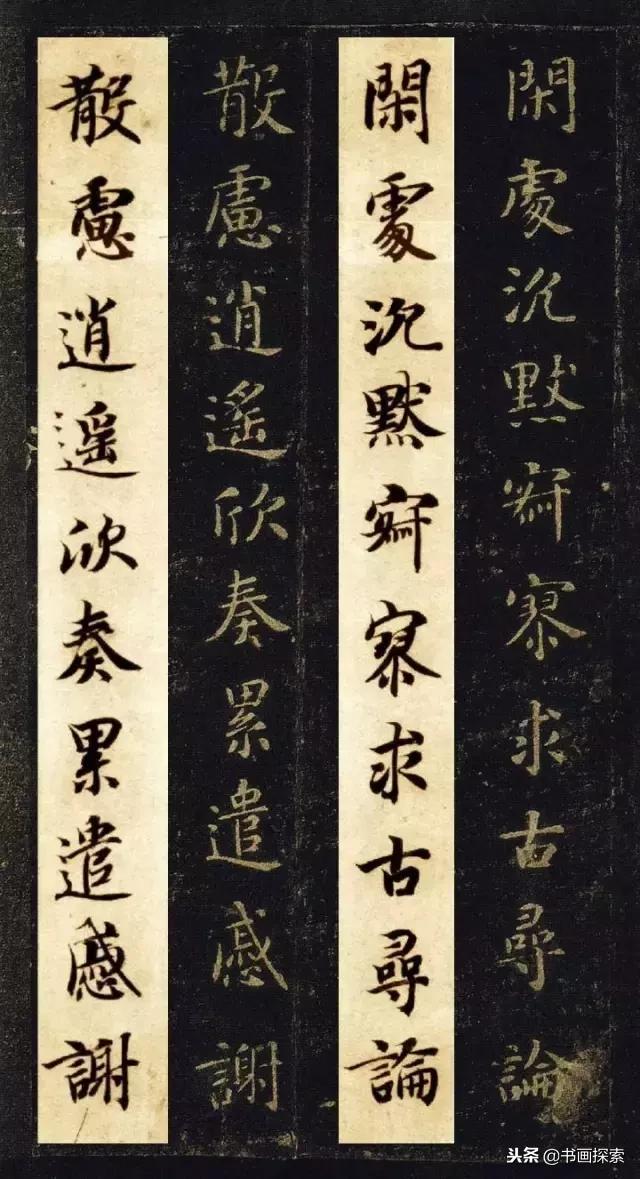 閑處沉默寂寥求古尋論
閑處沉默寂寥求古尋論
散慮逍遙欣奏累遣慼謝
散慮逍遙欣奏累遣慼謝
头条 @书画探索